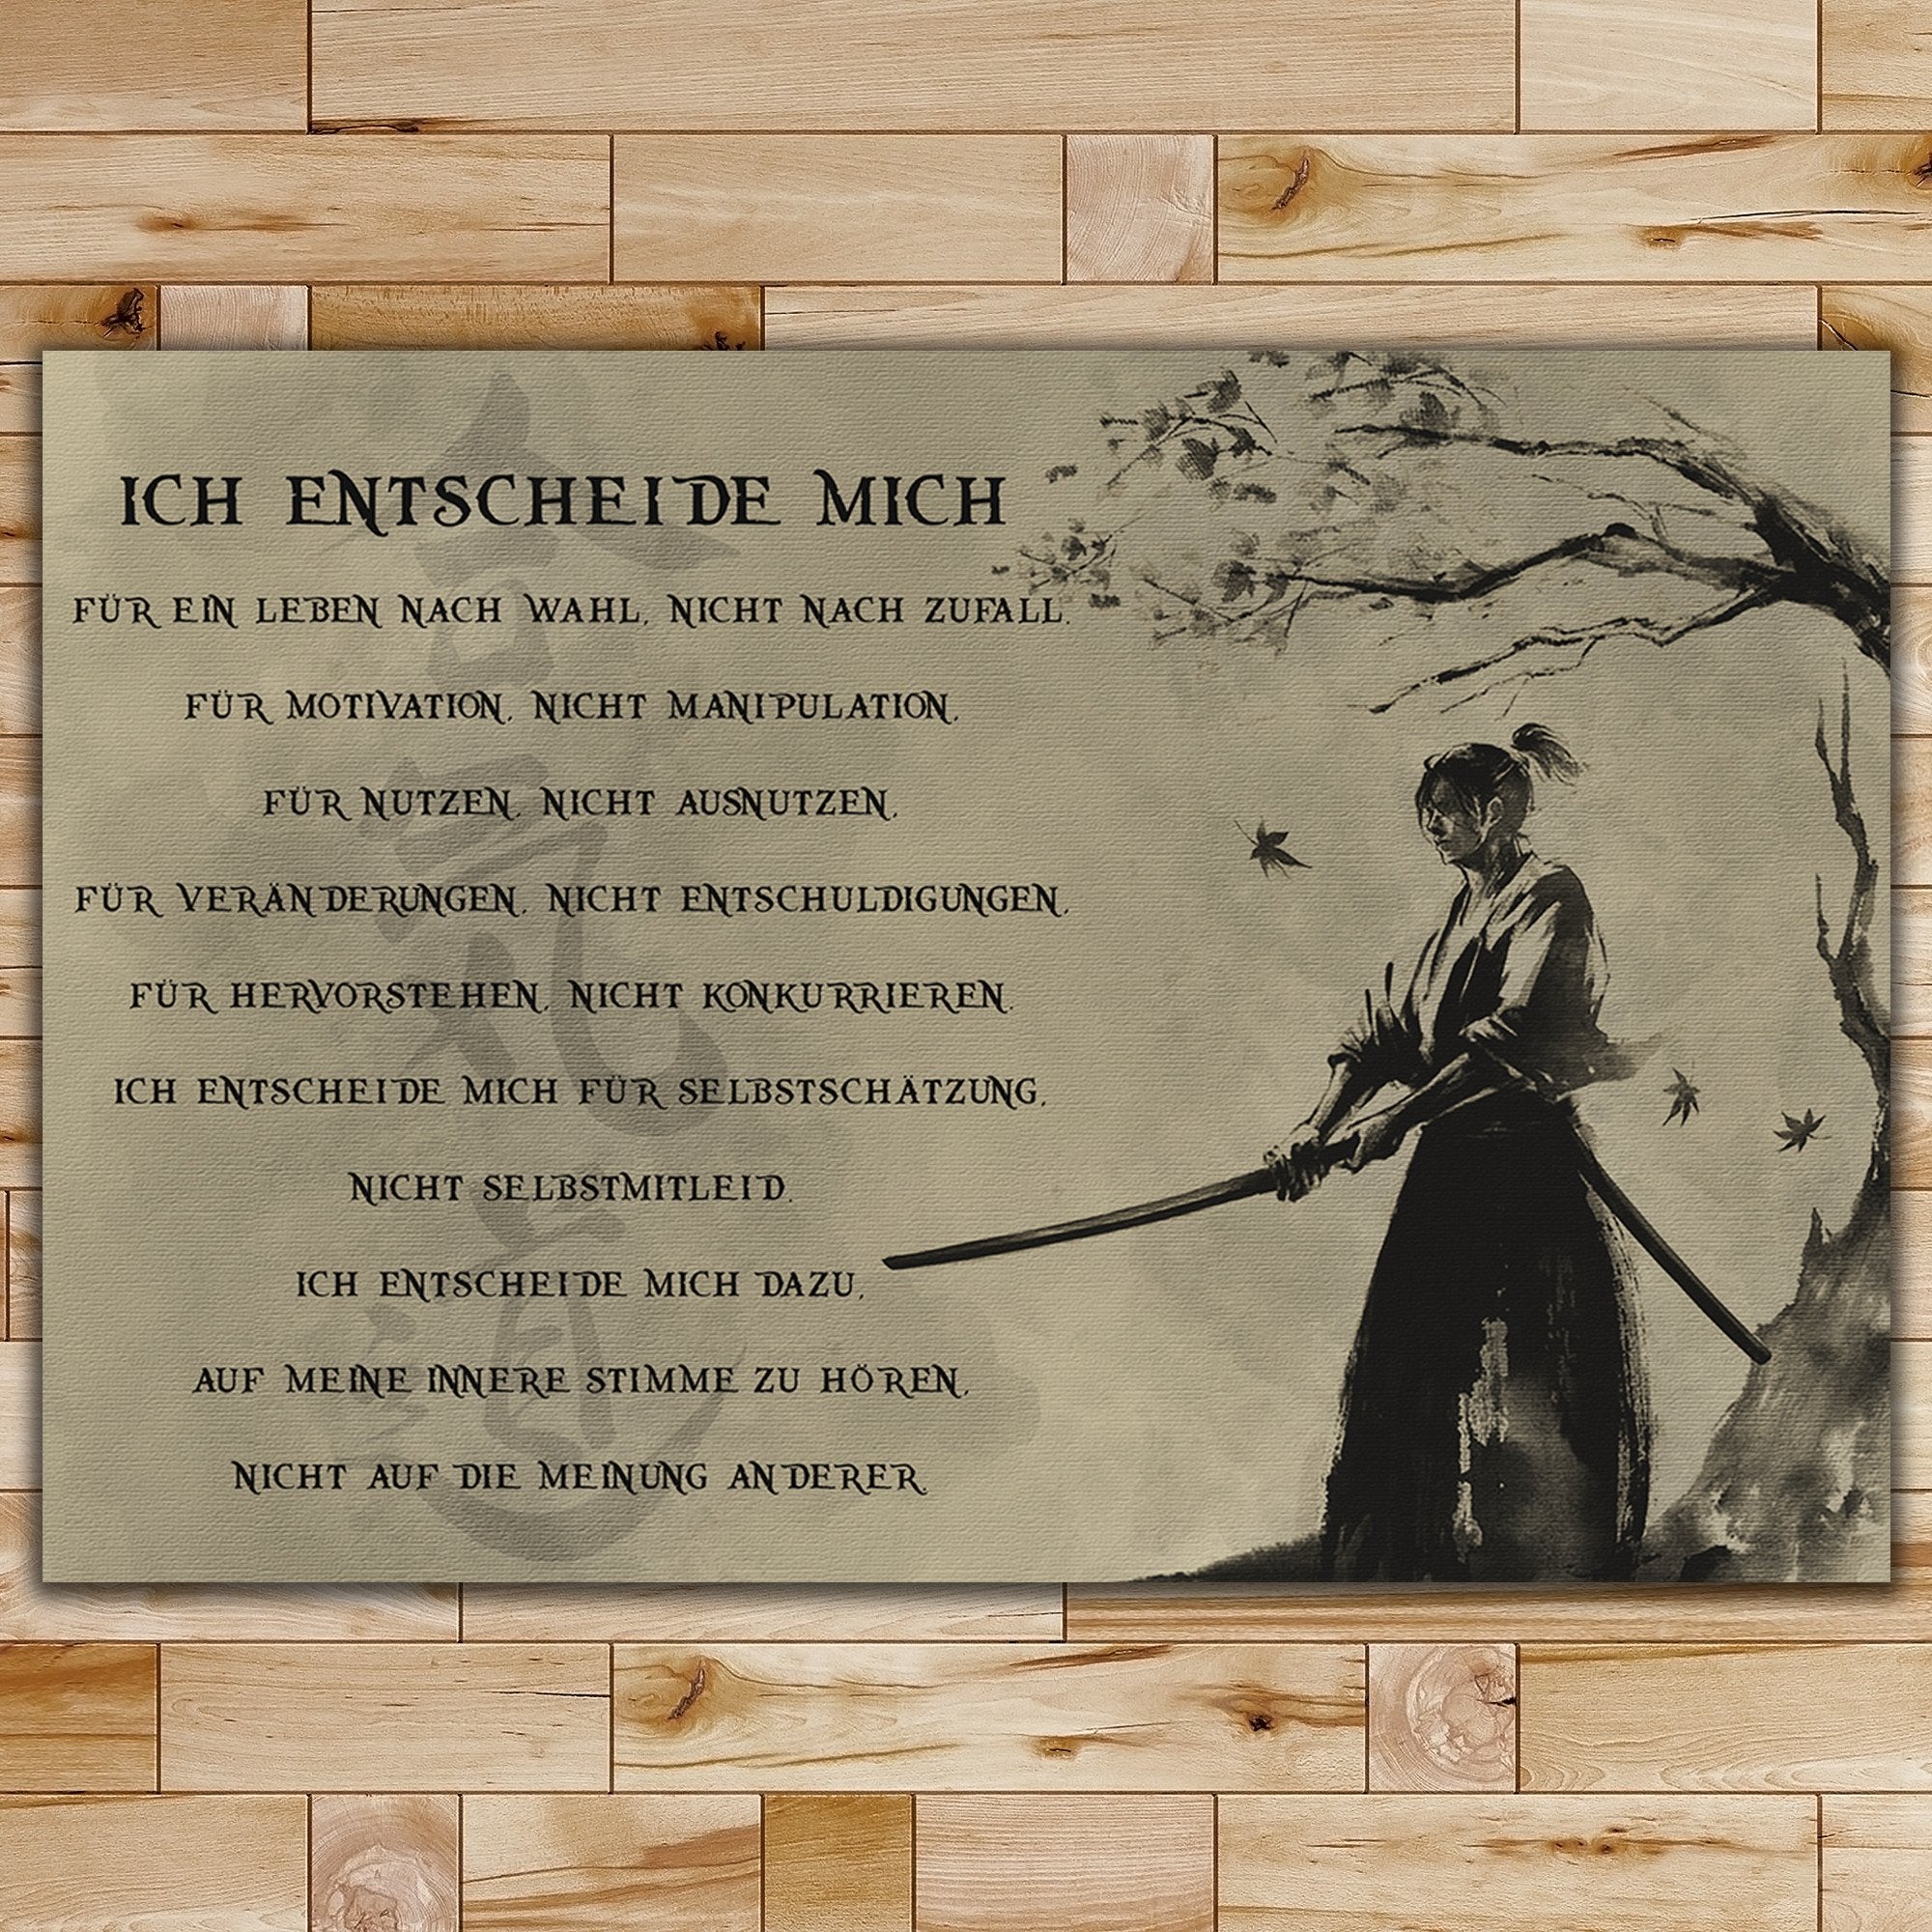 ICH ENTSCHEIDE MICH
FÜR EIN LEBEN NACH WAHL, NICHT NACH ZUFALL.
FÜR MOTIVATION, NICHT MANIPULATION,
FÜR NUTZEN, NICHT AUSNUTZEN,
FÜR VERÄNDERUNGEN, NICHT ENTSCHULDIGUNGEN,
FÜR HERVORSTEHEN, NICHT KONKURRIEREN.
ICH ENTSCHEIDE MICH FÜR SELBSTSCHÄTZUNG,
NICHT SELBSTMITLEID.
ICH ENTSCHEIDE MICH DAZU,
AUF MEINE INNERE STIMME ZU HÖREN,
NICHT AUF DIE MEINUNG ANDERER.